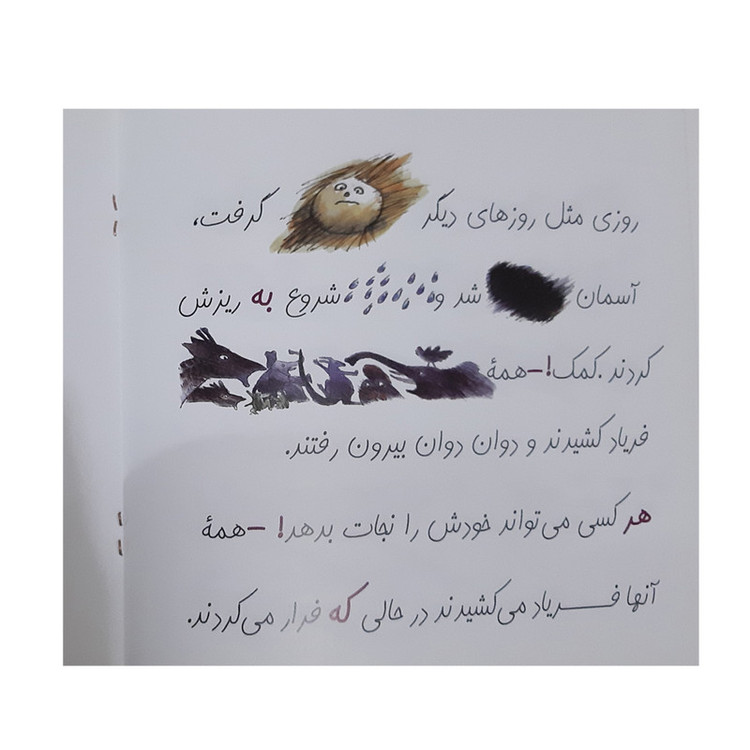 روزی مثل روزهای دیگر گرفت،
آسمان شد و شروع به ریزش
کردند. کمک!-همهٔ
فریاد کشیدند و دوان دوان بیرون رفتند.
هر کسی می‌تواند خودش را نجات بدهد! -همهٔ
آنها فـــریاد می‌کشیدند در حالی که فرار می‌کردند.